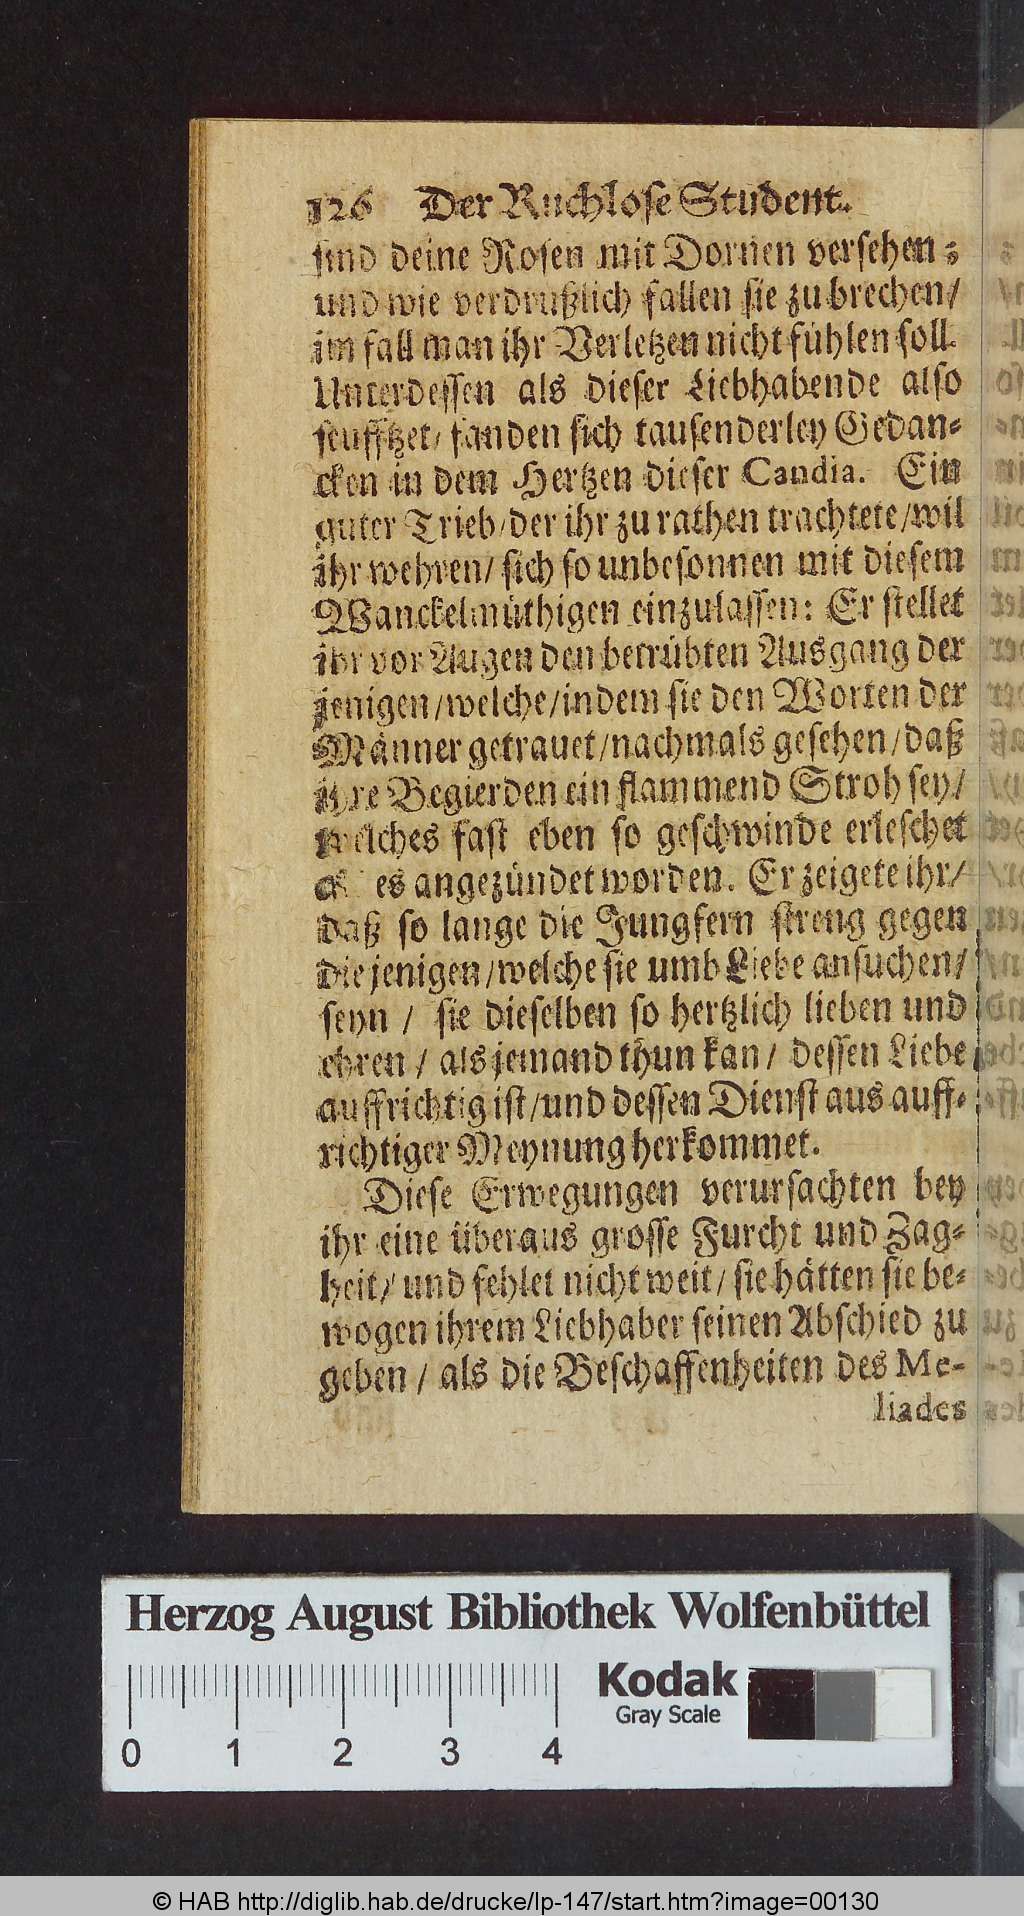 126 Der Ruchlose Student.
sind deine Rosen mit Dornen versehen;
und wie verdrußlich fallen sie zu brechen/
im fall man ihr Verletzen nicht fühlen soll.
Unterdessen als dieser Liebhabende also
seufftzet/ fanden sich tausenderley Gedan-
cken in dem Hertzen dieser Candia. Ein
guter Trieb/ der ihr zu rathen trachtete/ wil
ihr wehren/ sich so unbesonnen mit diesem
Wanckelmüthigen einzulassen: Er stellet
ihr vor Augen den betrübten Ausgang der
jenigen/ welche/ indem sie den Worten der
Männer getrauet/ nachmals gesehen/ daß
ihre Begierden ein flammend Stroh sey/
welches fast eben so geschwinde erleschet
als es angezündet worden. Er zeigete ihr/
daß so lange die Jungfern streng gegen
diejenigen/ welche sie umb Liebe ansuchen/
seyn / sie dieselben so hertzlich lieben und
ehren / als jemand thun kan / dessen Liebe
auffrichtig ist/ und dessen Dienst aus auff-
richtiger Meynung herkommet.
Diese Erwegungen verursachten bey
ihr eine überaus grosse Furcht und Zag-
heit/ und fehlet nicht weit/ sie hätten sie be-
wogen ihrem Liebhaber seinen Abschied zu
geben / als die Beschaffenheiten des Me-
liades
Herzog August Bibliothek Wolfenbüttel
Kodak
Gray Scale
0 1 2 3 4
© HAB http://diglib.hab.de/drucke/lp-147/start.htm?image=00130